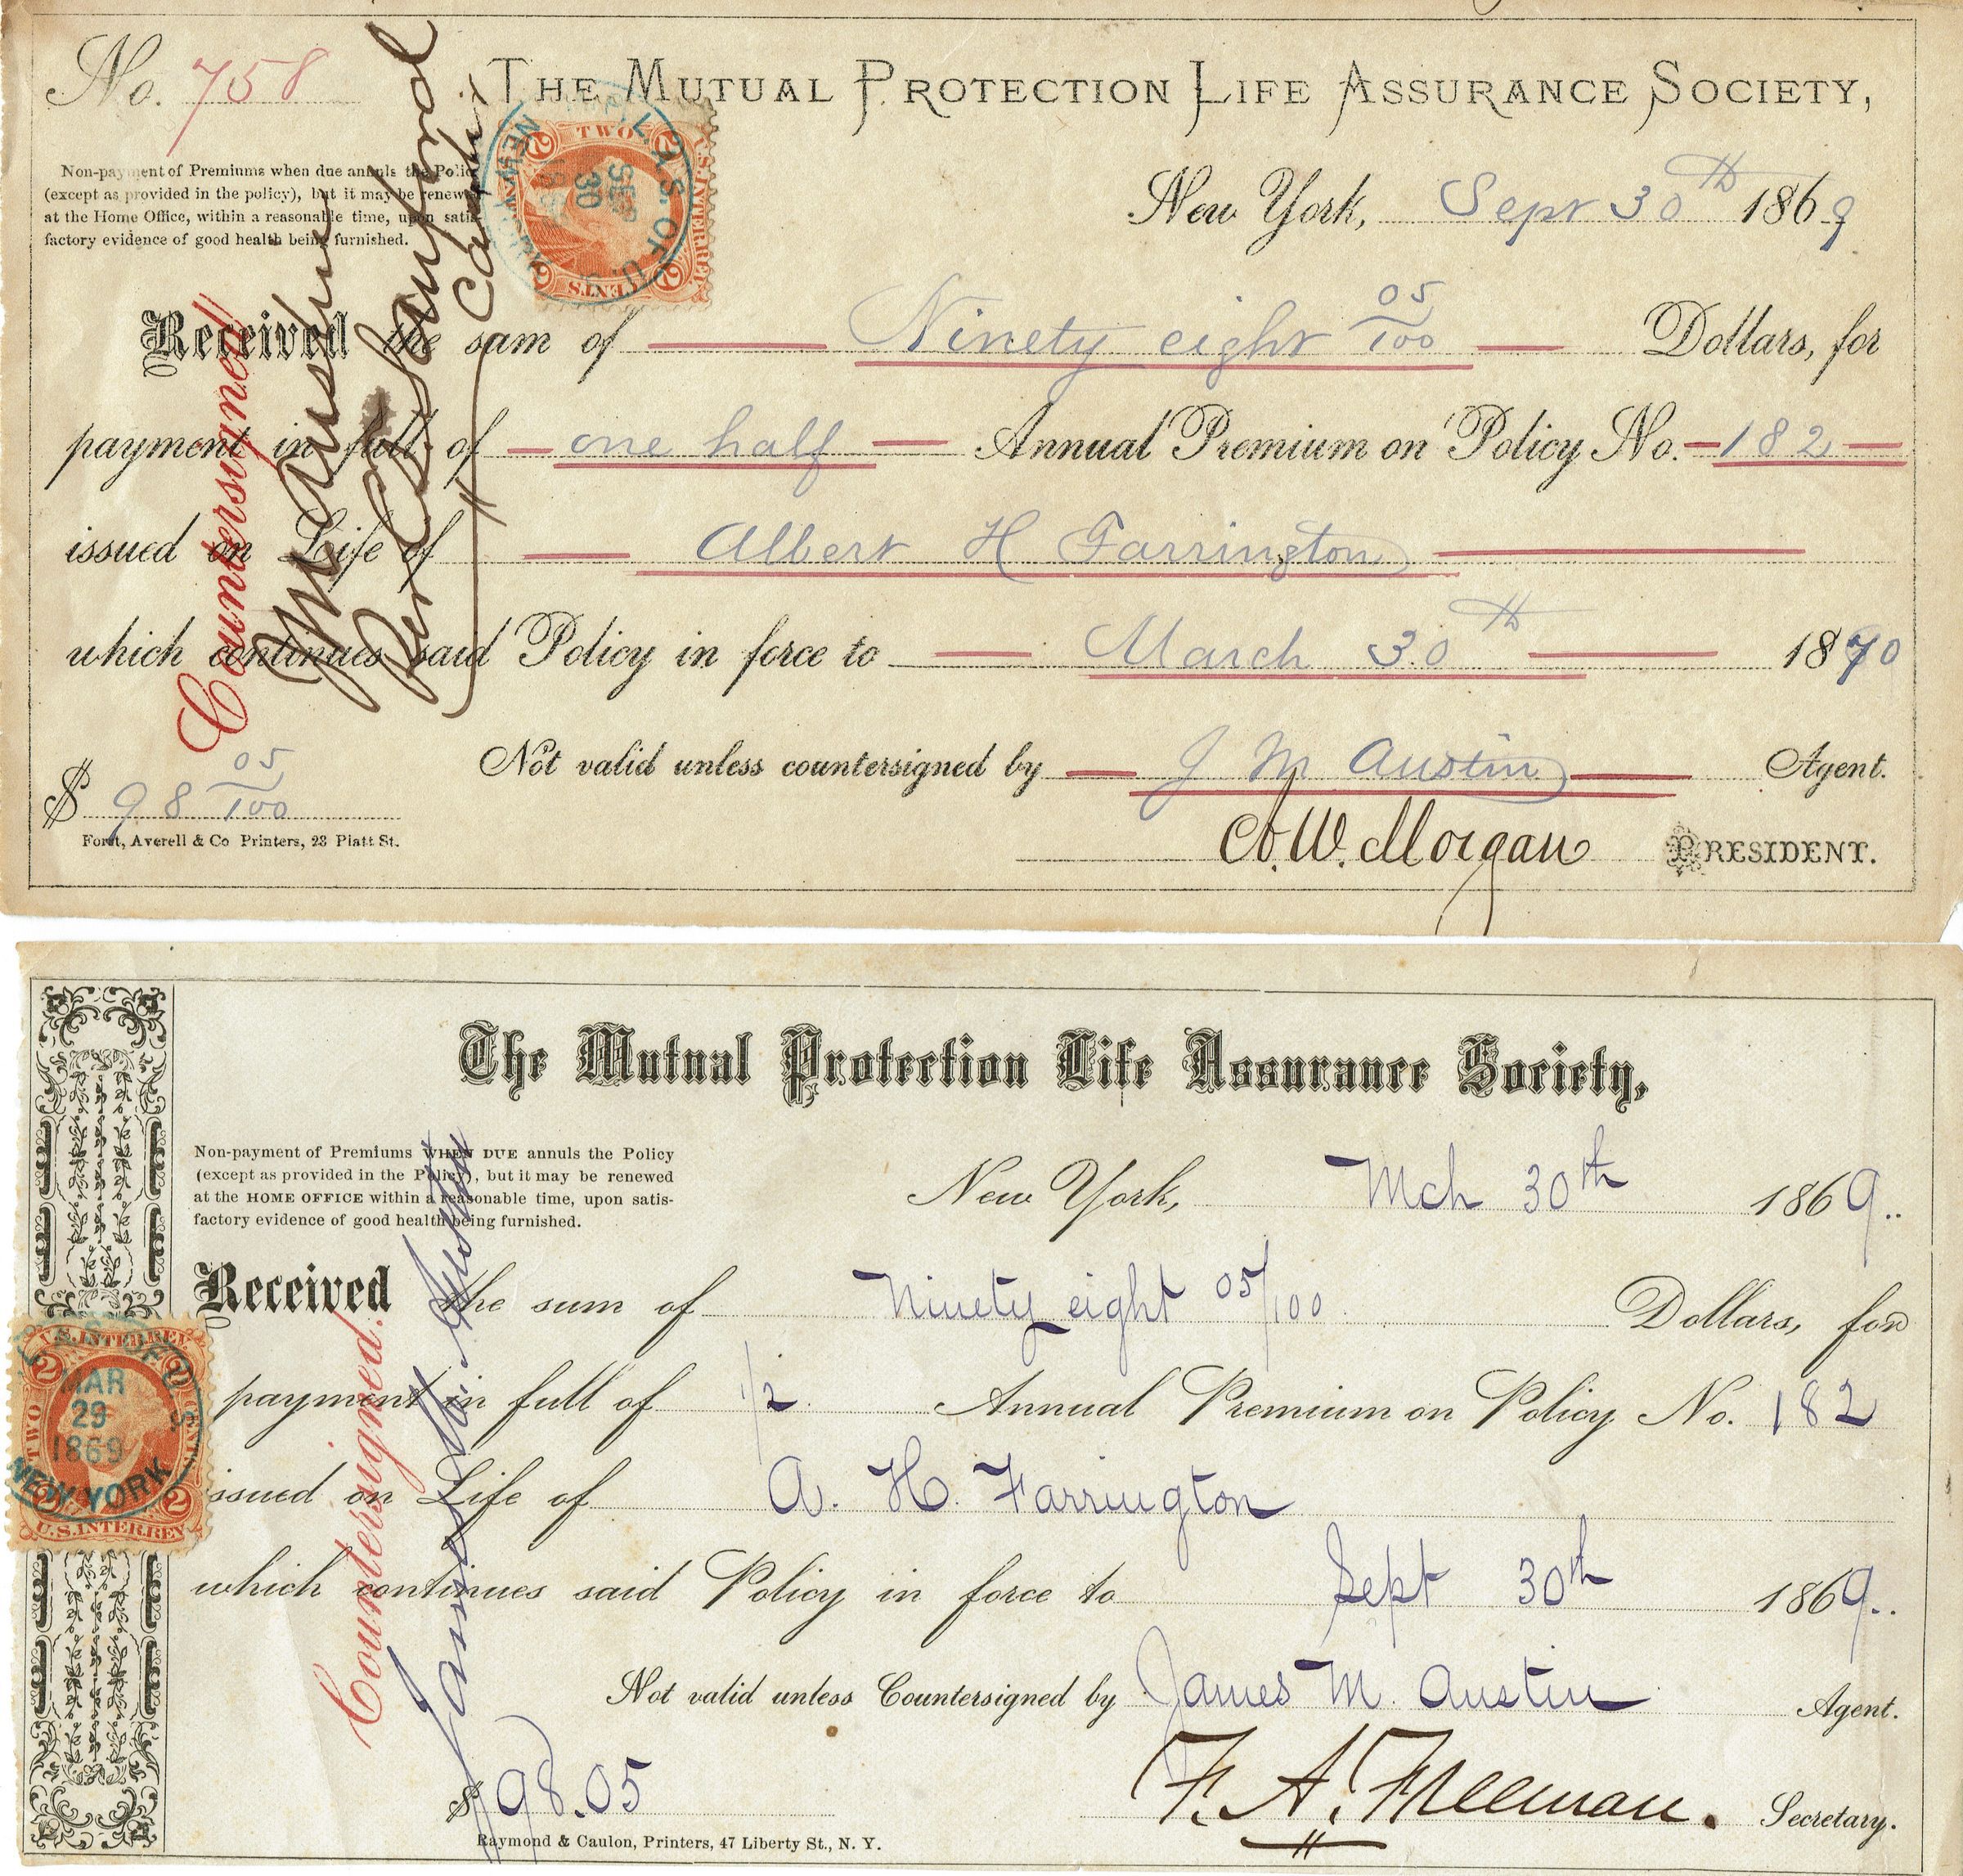 No. 758
THE MUTUAL PROTECTION LIFE ASSURANCE SOCIETY,
Non-payment of Premiums when due annuls the Policy
(except as provided in the policy), but it may be renewed
at the Home Office, within a reasonable time, upon satis-
factory evidence of good health being furnished.
TWO
U.S. INTER. REV.
2 CENTS 2
SEP
30
New York, Sept 30th 1869
Received the sum of Ninety eight 05/100 Dollars, for
payment in full of one half Annual Premium on Policy No. 182
issued on Life of Albert H Farrington
which continues said Policy in force to March 30th 1870
Countersigned
J M Austin
Per
Cashier
Not valid unless countersigned by J M Austin Agent.
$ 98 05/100
A. W. Morgan PRESIDENT.
Forst, Averell & Co Printers, 23 Platt St.
The Mutual Protection Life Assurance Society,
Non-payment of Premiums WHEN DUE annuls the Policy
(except as provided in the Policy), but it may be renewed
at the HOME OFFICE within a reasonable time, upon satis-
factory evidence of good health being furnished.
New York, Mch 30th 1869..
Received the sum of Ninety eight 05/100 Dollars, for
U.S. INTER. REV.
2 2
TWO CENTS
MAR
29
1869
NEW YORK
2 2
U.S. INTER. REV.
payment in full of 1/2 Annual Premium on Policy No. 182
issued on Life of A. H. Farrington
which continues said Policy in force to Sept 30th 1869..
Countersigned.
James M. Austin
Not valid unless Countersigned by James M. Austin Agent.
$ 98.05
F. A. Freeman. Secretary.
Raymond & Caulon, Printers, 47 Liberty St., N. Y.